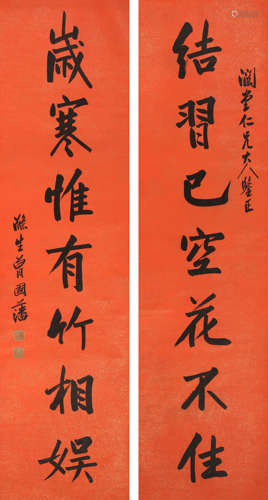 涵堂仁兄大人鉴正
結習已空花不住
歲寒惟有竹相娱
滌生曾國藩